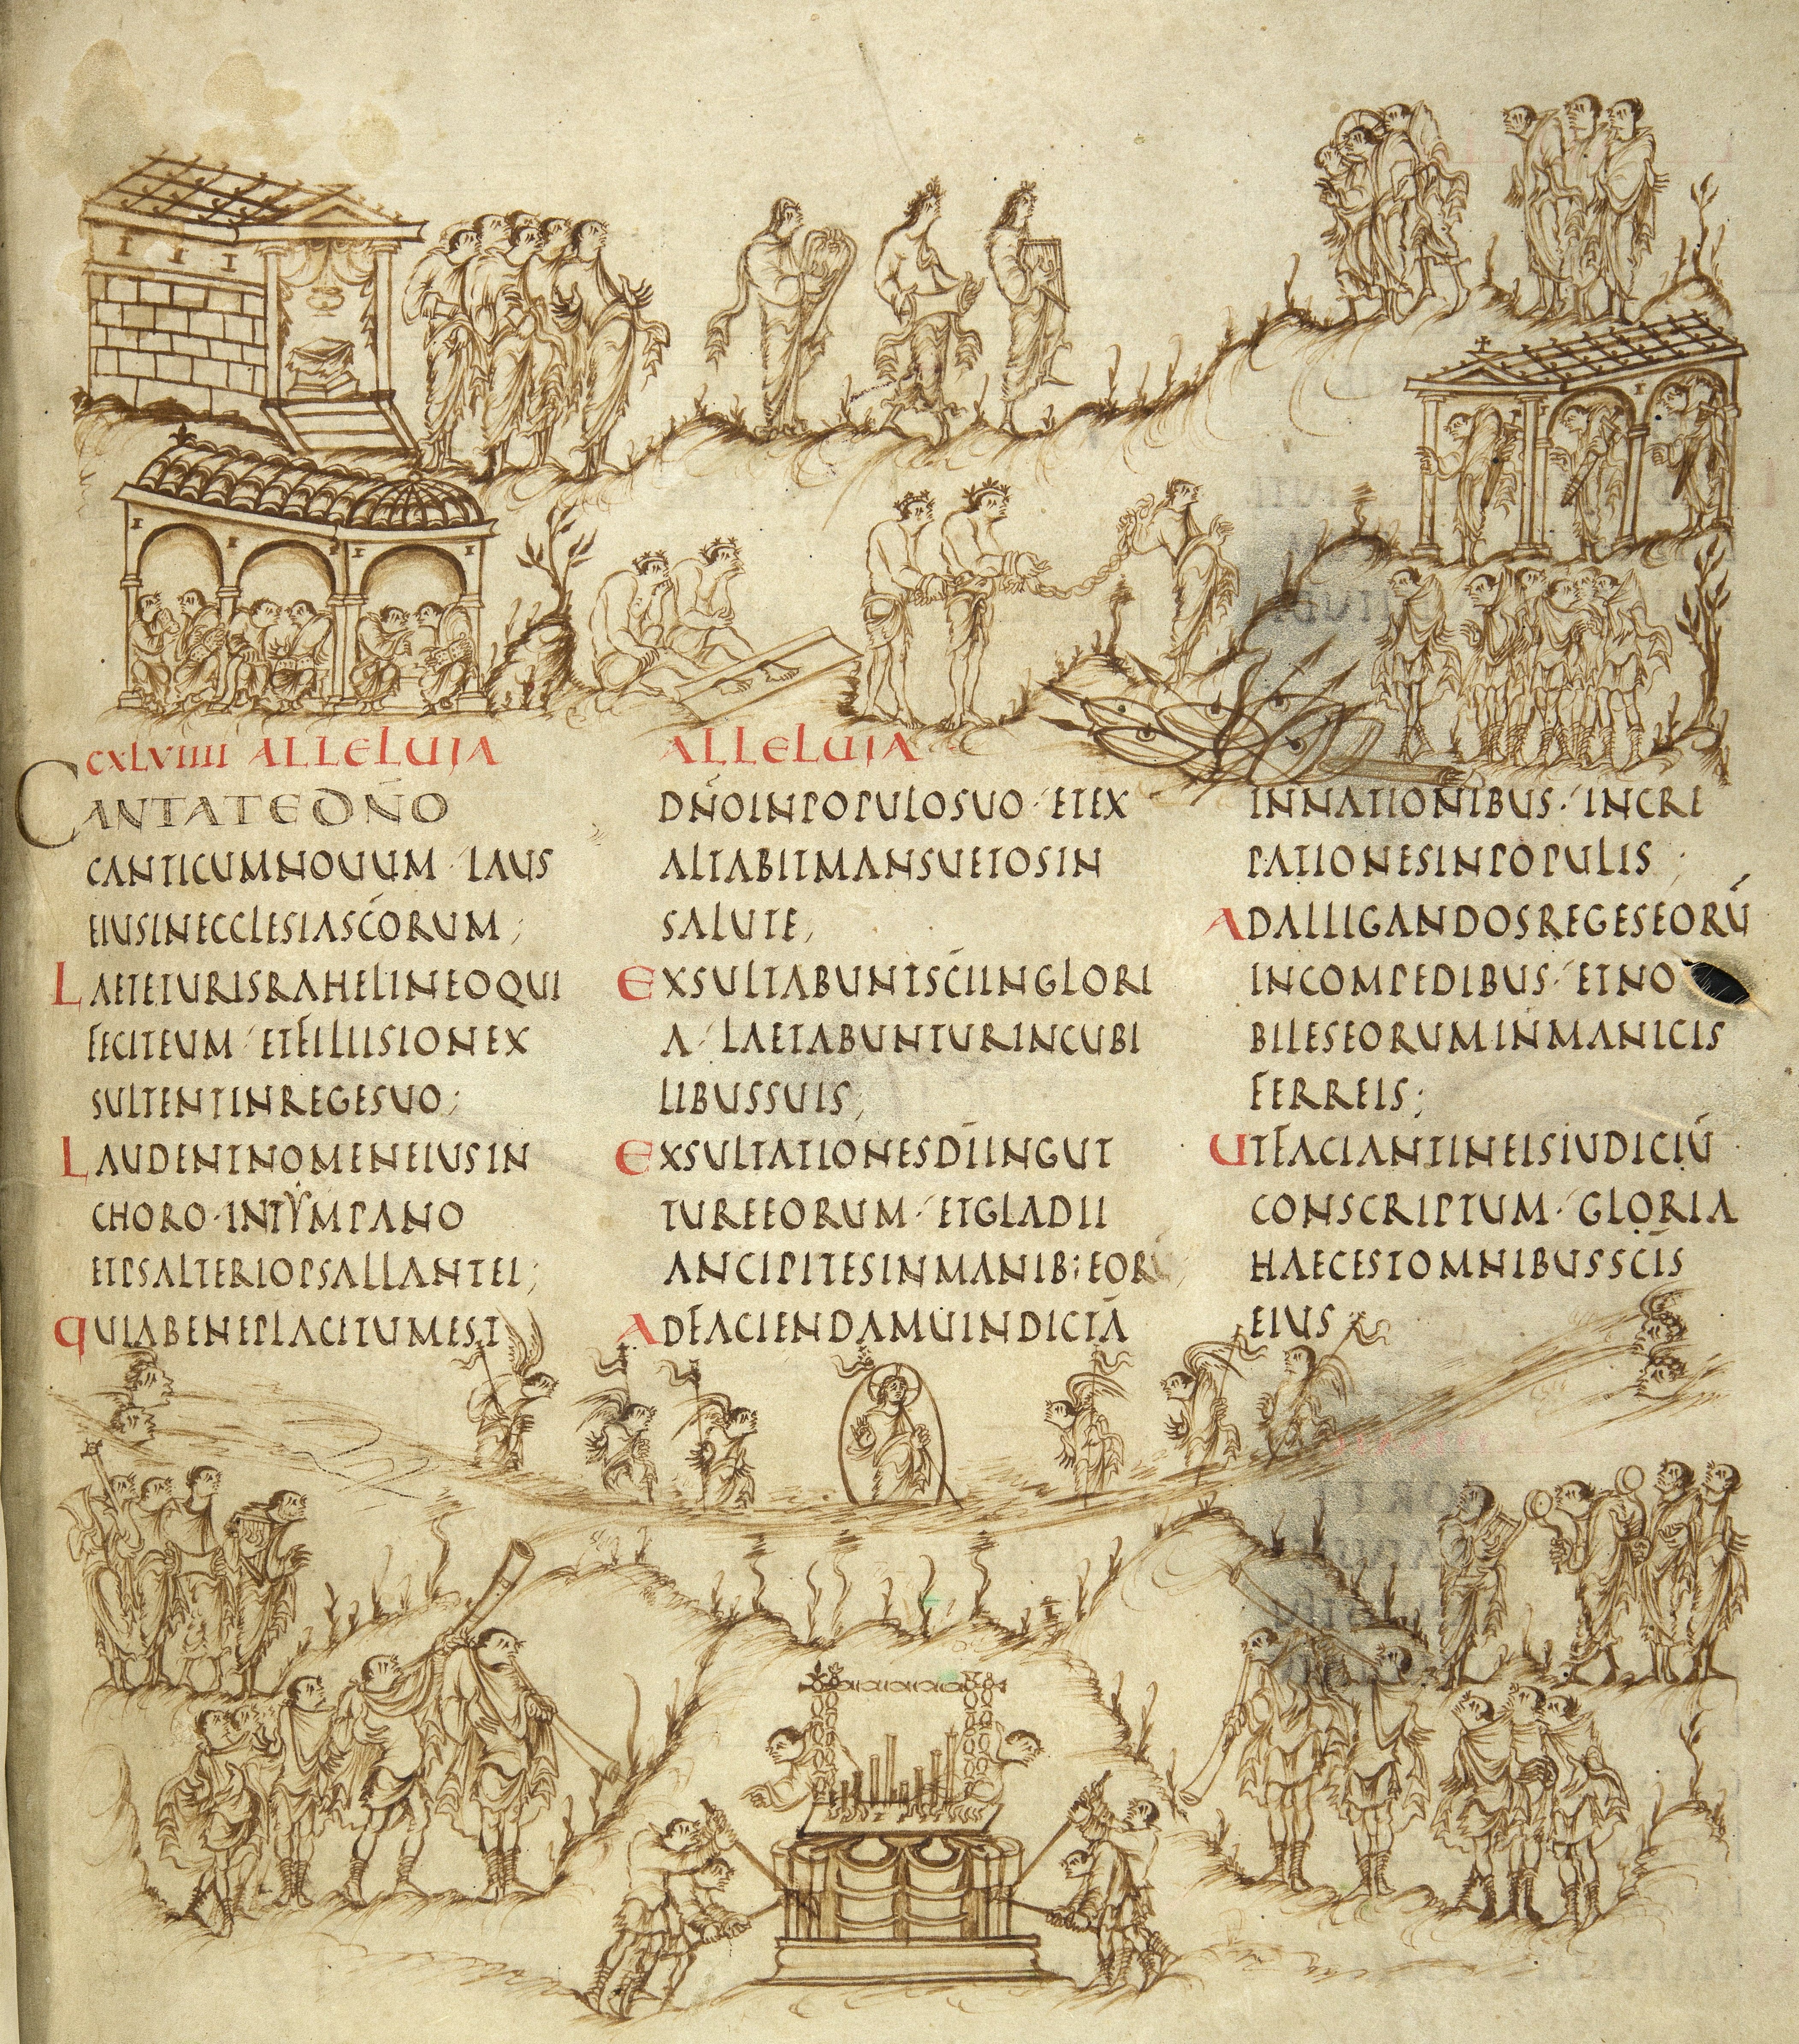 CXLVIIII ALLELUJA
CANTATE DÑO
CANTICUM NOUUM · LAUS
EIUS IN ECCLESIA SCORUM;
LAETETUR ISRAHEL IN EO QUI
FECIT EUM · ET FILII SION EX
SULTENT IN REGE SUO;
LAUDENT NOMEN EIUS IN
CHORO · IN TYMPANO
ET PSALTERIO PSALLANT EI;
QUIA BENEPLACITUM EST
ALLELUIA
DÑO IN POPULO SUO · ET EX
ALTABIT MANSUETOS IN
SALUTE;
EXSULTABUNT SCI IN GLORI
A · LAETABUNTUR IN CUBI
LIBUS SUIS;
EXSULTATIONES DI IN GUT
TURE EORUM · ET GLADII
ANCIPITES IN MANIB; EORU;
AD FACIENDAM UINDICTA
IN NATIONIBUS · INCRE
PATIONES IN POPULIS;
AD ALLIGANDOS REGES EORU
IN COMPEDIBUS · ET NO
BILES EORUM IN MANICIS
FERREIS;
UT FACIANT IN EIS IUDICIU
CONSCRIPTUM · GLORIA
HAEC EST OMNIBUS SCIS
EIUS